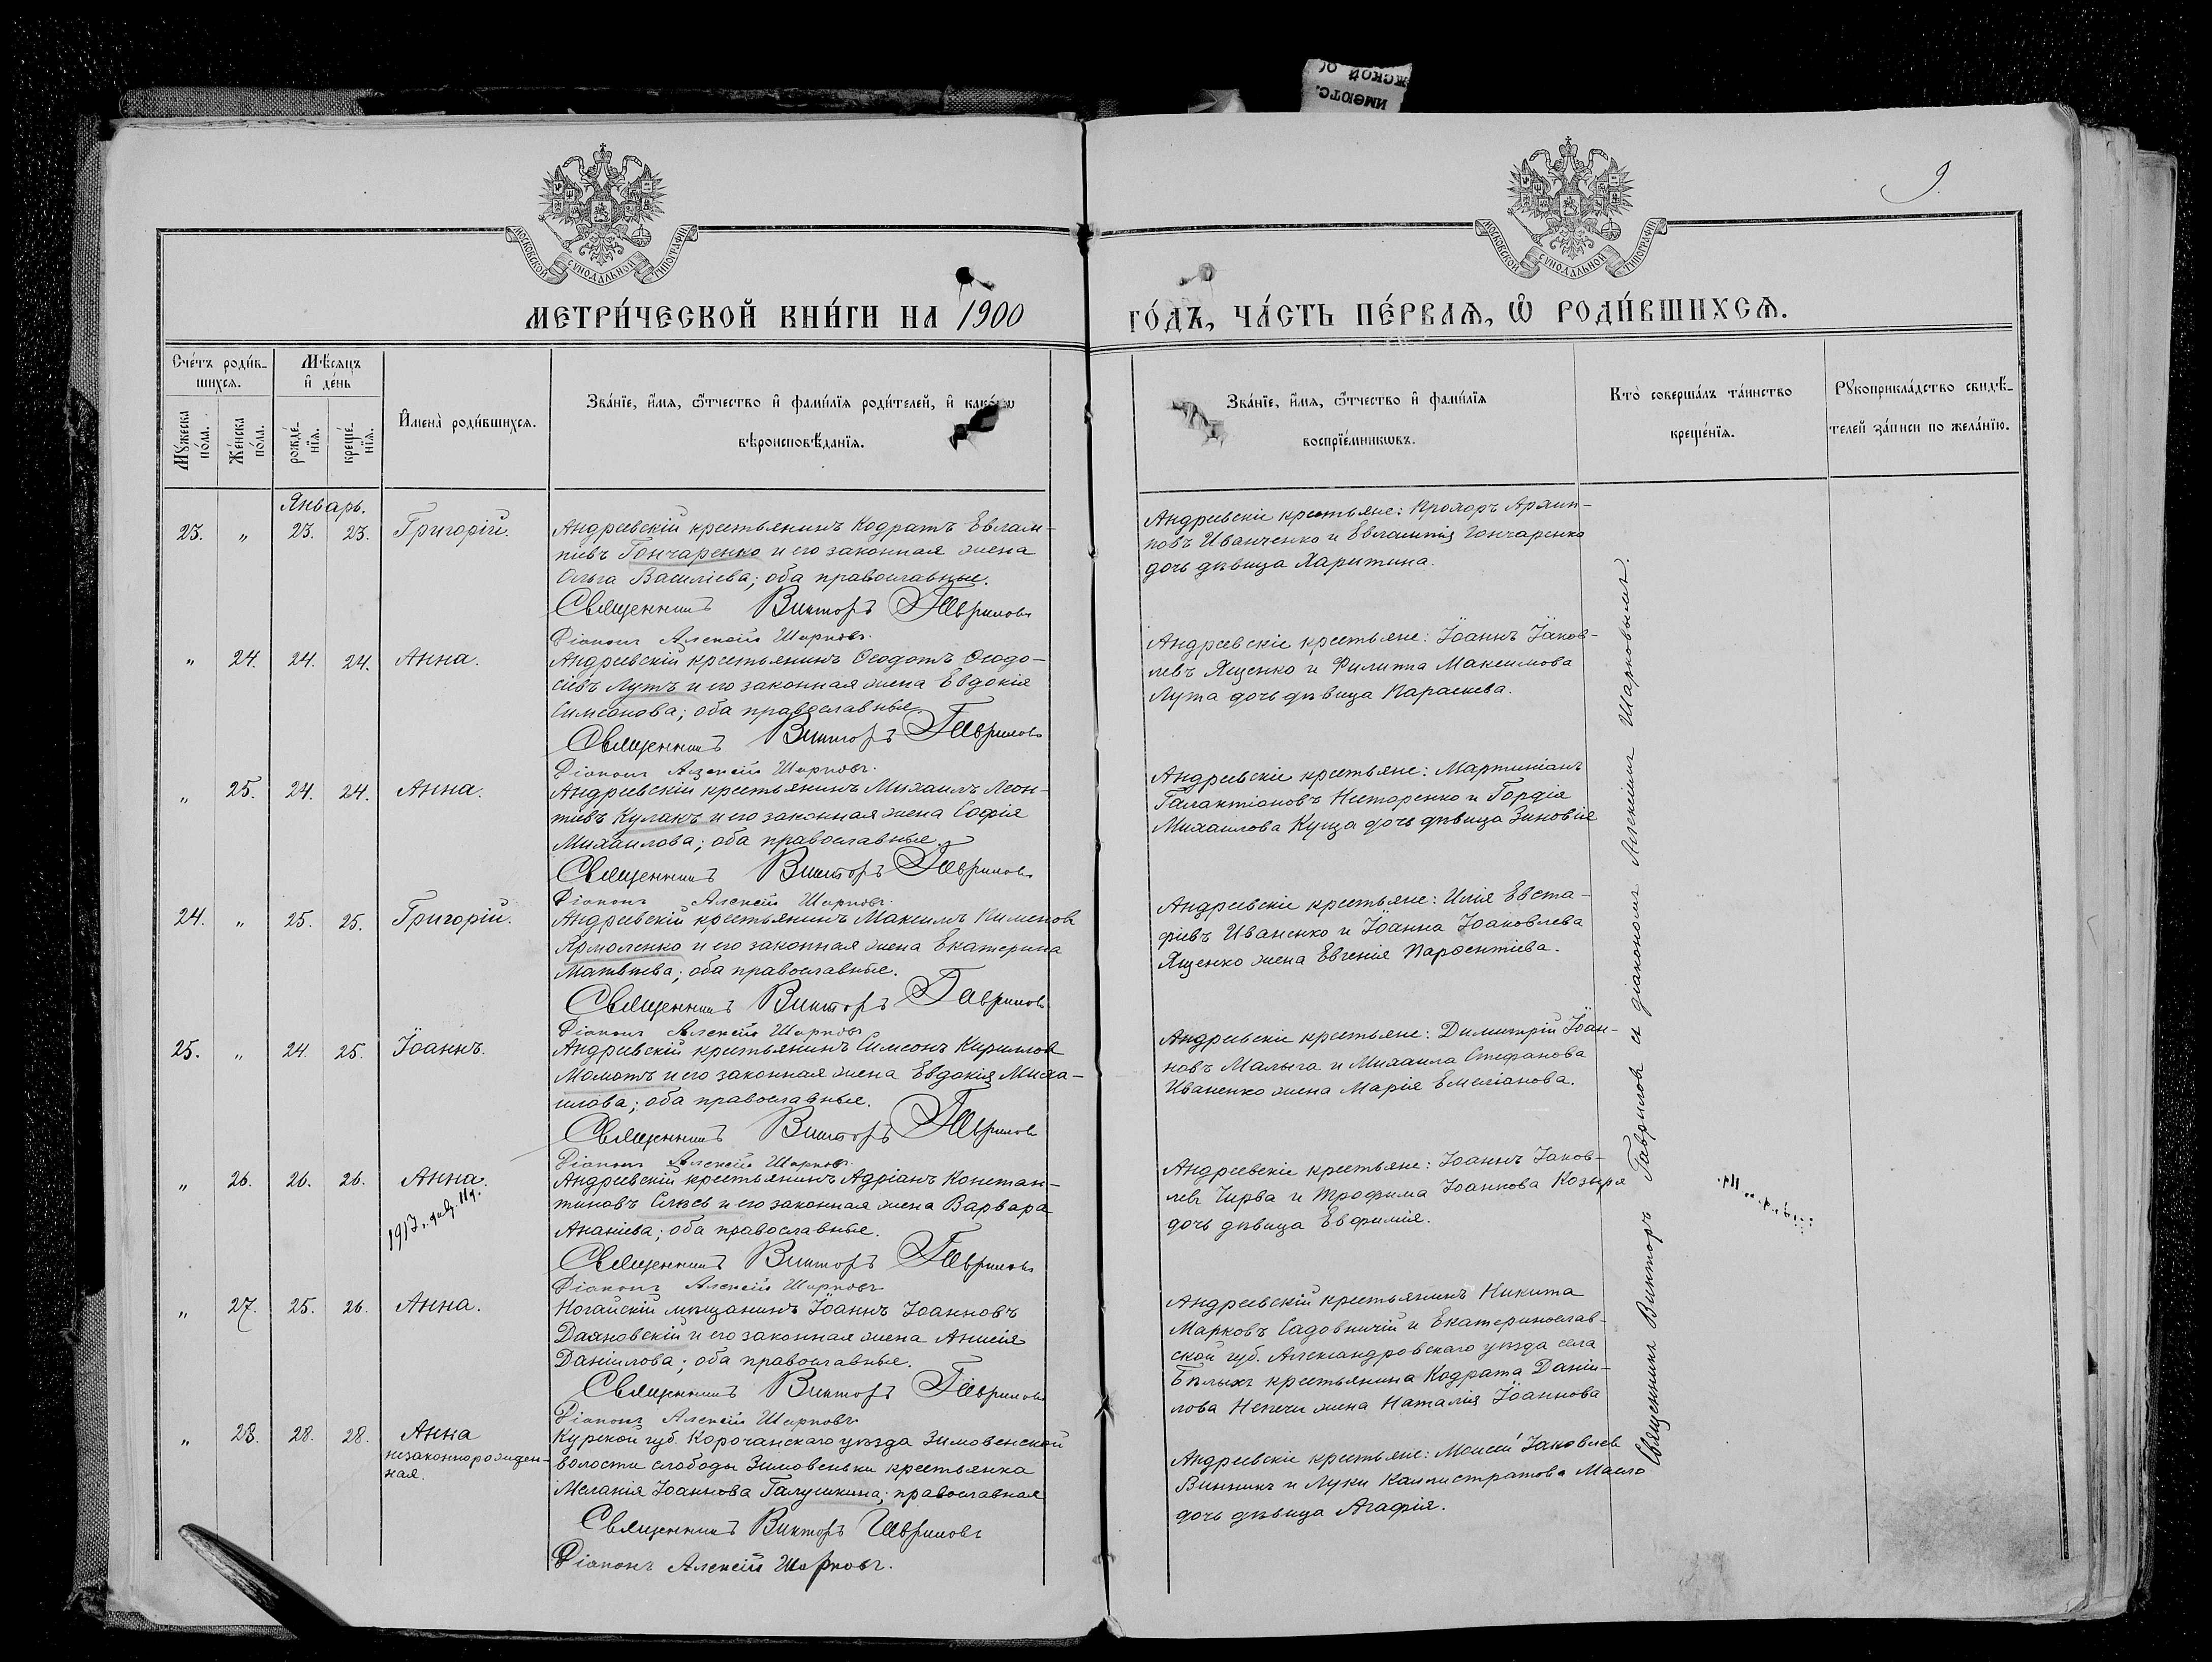 ИМЕЮТС.
ЖСКОЙ ОС
МОСКОВСКОЙ СѴНОДАЛЬНОЙ ТИПОГРАФІИ
МОСКОВСКОЙ СѴНОДАЛЬНОЙ ТИПОГРАФІИ
9.
МЕТРИ́ЧЕСКОЙ КНИ́ГИ НА 1900
ГО́ДЪ, ЧА́СТЬ ПЕ́РВАѦ, Ѡ҆ РОДИ́ВШИХСѦ.
Сче́тъ роди́в-
шихсѧ.
Мꙋжеска по́ла.
Же́нска по́ла.
Мѣ́сѧцъ
и҆ де́нь
рожде́-
нїѧ.
креще́-
нїѧ.
И҆мена̀ роди́вшихсѧ.
Зва́нїе, и҆́мѧ, ѻ҆́тчество и҆ фами́лїѧ роди́телей, и҆ како́гѡ
вѣроисповѣ́данїѧ.
Зва́нїе, и҆́мѧ, ѻ҆́тчество и҆ фами́лїѧ
воспрїе́мникѡвъ.
Кто̀ соверша́лъ та́инство
креще́нїѧ.
Рꙋкоприкла́дство свидѣ́-
телей за́писи по жела́нїю.
Январь.
23. „ 23. 23. Григорій.
Андреевскій крестьянинъ Кодратъ Евлам-
піевъ Гончаренко и его законная жена
Ольга Василіева; оба православные.
Священникъ Викторъ Гавриловъ
Діаконъ Алексій Шарковъ.
Андреевскіе крестьяне: Прохоръ Архип-
повъ Иванченко и Евлампія Гончаренко
дочь дѣвица Харитина.
„ 24. 24. 24. Анна.
Андреевскій крестьянинъ Ѳеодотъ Ѳеодо-
сіевъ Лутъ и его законная жена Евдокія
Симеонова; оба православные.
Священникъ Викторъ Гавриловъ
Діаконъ Алексій Шарковъ.
Андреевскіе крестьяне: Іоаннъ Іаков-
левъ Ященко и Филиппа Максимова
Лута дочь дѣвица Параскева.
„ 25. 24. 24. Анна.
Андреевскій крестьянинъ Михаилъ Леон-
тіевъ Кулакъ и его законная жена Софія
Михаилова; оба православные.
Священникъ Викторъ Гавриловъ
Діаконъ Алексій Шарковъ.
Андреевскіе крестьяне: Мартиніанъ
Галактіоновъ Несторенко и Гордія
Михаилова Куща дочь дѣвица Зиновія
24. „ 25. 25. Григорій.
Андреевскій крестьянинъ Максимъ Пименовъ
Ярмоленко и его законная жена Екатерина
Матвѣева; оба православные.
Священникъ Викторъ Гавриловъ
Діаконъ Алексій Шарковъ
Андреевскіе крестьяне: Илія Евста-
фіевъ Иваненко и Іоанна Іоаковлева
Ященко жена Евгенія Парѳентіева.
25. „ 24. 25. Іоаннъ.
Андреевскій крестьянинъ Симеонъ Кирилловъ
Момотъ и его законная жена Евдокія Миха-
илова; оба православные.
Священникъ Викторъ Гавриловъ
Діаконъ Алексій Шарковъ.
Андреевскіе крестьяне: Димитрій Іоан-
новъ Малыга и Михаила Стефанова
Иваненко жена Марія Емеліанова.
„ 26. 26. 26. Анна.
Андреевскій крестьянинъ Адріанъ Констан-
тиновъ Слюсь и его законная жена Варвара
Ананіева; оба православные.
Священникъ Викторъ Гавриловъ
Діаконъ Алексій Шарковъ
Андреевскіе крестьяне: Іоаннъ Іаков-
левъ Чирва и Трофима Іоаннова Козыря
дочь дѣвица Евфимія.
„ 27. 25. 26. Анна.
Ногайскій мѣщанинъ Іоаннъ Іоанновъ
Даяновскій и его законная жена Анисія
Даніилова; оба православные.
Священникъ Викторъ Гавриловъ
Діаконъ Алексій Шарковъ
Андреевскій крестьянинъ Никита
Марковъ Садовничій и Екатеринослав-
ской губ. Александровскаго уѣзда села
Бѣлыхъ крестьянина Кодрата Даніи-
лова Непечи жена Наталія Іоаннова
„ 28. 28. 28. Анна
незаконнорожден-
ная.
Курской губ. Корочанскаго уѣзда Зимовенской
волости слободы Зимовеньки крестьянка
Меланія Іоаннова Галушкина; православная
Священникъ Викторъ Гавриловъ
Діаконъ Алексій Шарковъ.
Андреевскіе крестьяне: Моисей Іаковлевъ
Винникъ и Луки Каллистратова Масло
дочь дѣвица Агафія.
Священникъ Викторъ Гавриловъ съ діакономъ Алексіемъ Шарковымъ.